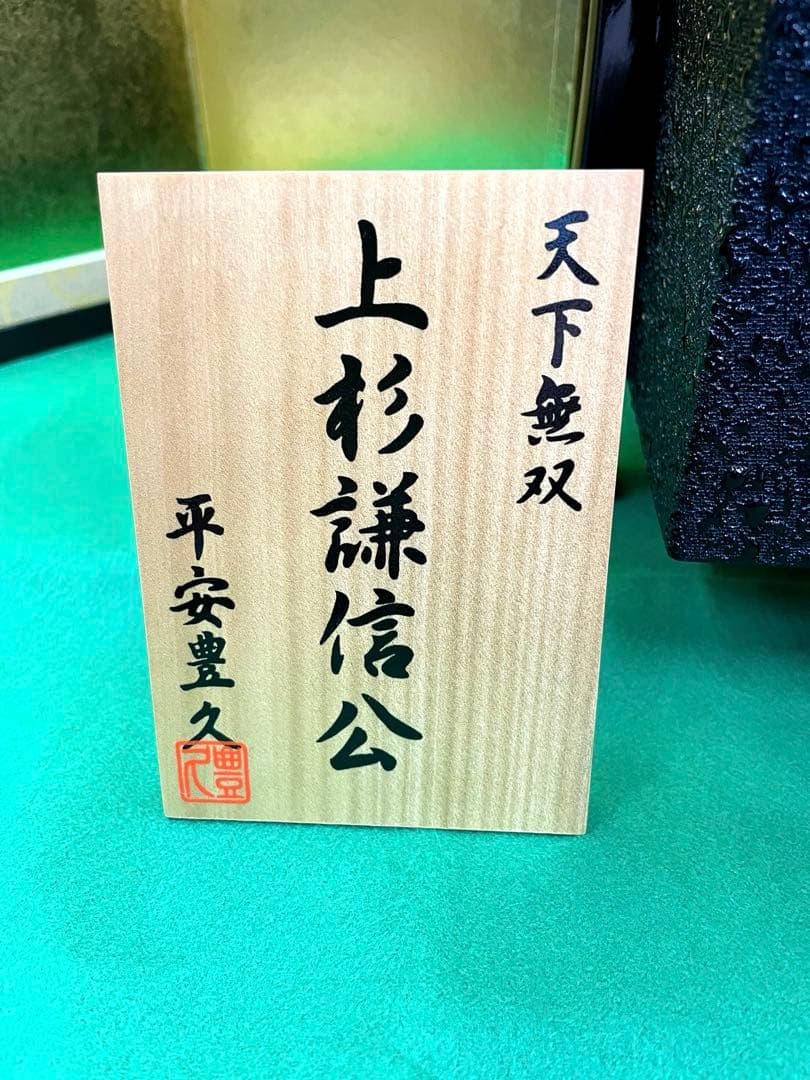 天下無双
上杉謙信公
平安豊久
豊久